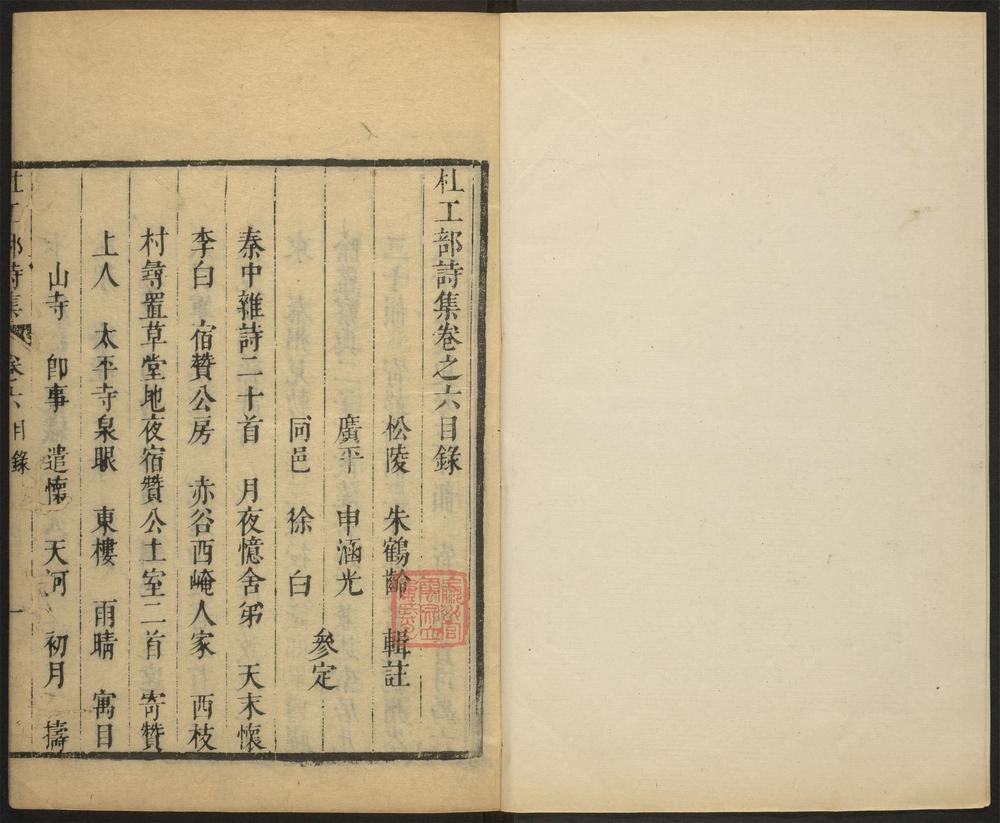 杜工部詩集卷之六目錄
松陵 朱鶴齡 輯註
廣平 申涵光
參定
同邑 徐白
秦中雜詩二十首 月夜憶舍弟 天末懷
李白 宿贊公房 赤谷西崦人家 西枝
村尋置草堂地夜宿贊公土室二首 寄贊
上人 太平寺泉眼 東樓 雨晴 寓目
山寺 卽事 遣懷 天河 初月 擣
杜工部詩集 卷六目錄 一